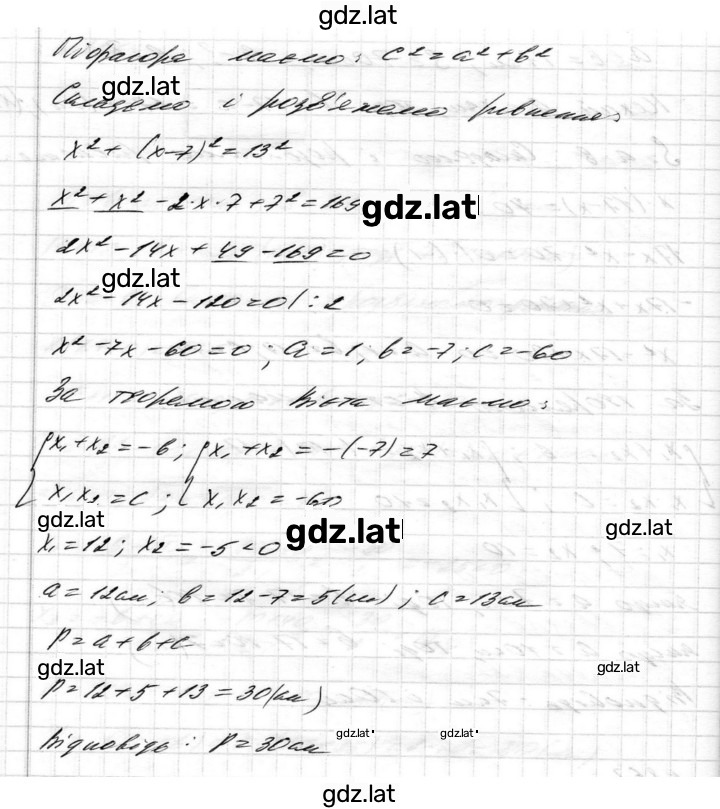 gdz.lat
Піфагора маємо: c² = a² + b²
gdz.lat
Складемо і розв'яжемо рівняння:
x² + (x-7)² = 13²
x² + x² - 2·x·7 + 7² = 169
gdz.lat
2x² - 14x + 49 - 169 = 0
gdz.lat
2x² - 14x - 120 = 0 | : 2
x² - 7x - 60 = 0 ; a = 1 ; b = -7 ; c = -60
За теоремою Вієта маємо:
{ x₁ + x₂ = -b ; { x₁ + x₂ = -(-7) = 7
x₁x₂ = c ; x₁x₂ = -60
gdz.lat gdz.lat gdz.lat
x₁ = 12 ; x₂ = -5 < 0
a = 12см ; b = 12 - 7 = 5(см) ; c = 13см
P = a + b + c
gdz.lat gdz.lat
P = 12 + 5 + 13 = 30(см)
Відповідь : P = 30см
gdz.lat gdz.lat
gdz.lat